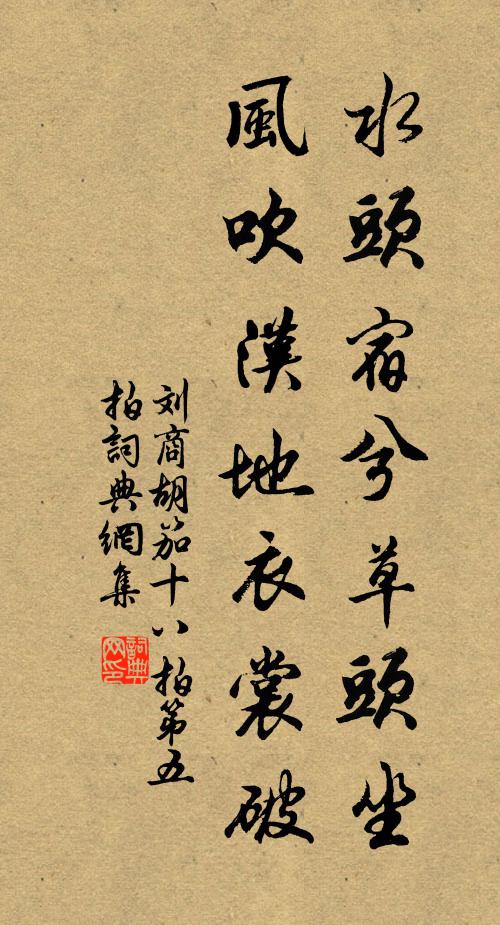 水頭宿兮草頭坐
風吹漢地衣裳破
刘商胡笳十八拍第五
拍詞典網集
詞典
网印